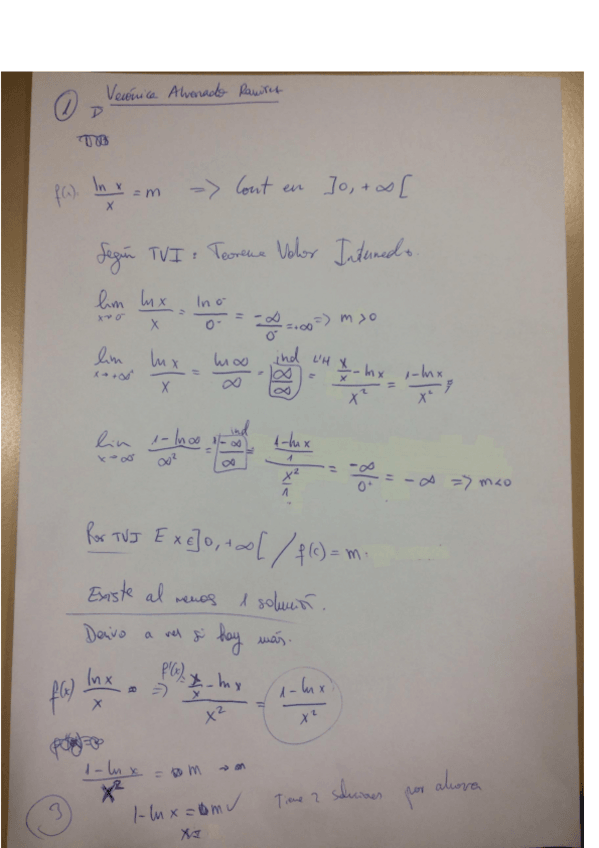 1
D Verónica Alvarado Ramírez
f(x) ln x / x = m => Cont en ]0, +∞[
Según TVI: Teorema Valor Intermedio.
lim x→0⁻ ln x / x = ln 0⁻ / 0⁻ = -∞ / 0⁻ = +∞ => m>0
lim x→+∞ ln x / x = ln ∞ / ∞ = ind ∞/∞ = L'H (x/x - ln x) / x² = (1-ln x) / x²
lim x→∞ (1-ln ∞) / ∞² = ind -∞/∞ = ((1-ln x)/1) / (x²/1) = -∞ / 0⁺ = -∞ => m<0
Por TVI E x ∈ ]0, +∞[ / f(c) = m.
Existe al menos 1 solución.
Derivo a ver si hay más.
f(x) ln x / x => f'(x) = (x/x - ln x) / x² = (1-ln x) / x²
(1-ln x) / x² = m
1-ln x = m ✓
3
Tiene 2 soluciones por ahora